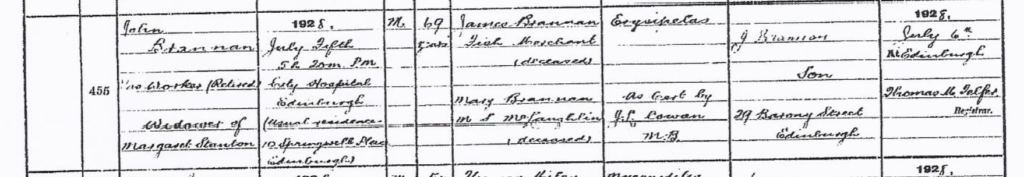 455
John
Brannan
Worker (Retired)
Widower of
Margaret Stanton
1928,
July Fifth
5h 20m P.M.
City Hospital
Edinburgh
(Usual residence
10 Springwell Place
Edinburgh)
M.
69
years
James Brannan
Fish Merchant
(deceased)
Mary Brannan
m.s. McLaughlin
(deceased)
Erysipelas
As Cert by
Cowan
M.B.
J Brannan
Son
29 Barony Street
Edinburgh
1928,
July 6th
At Edinburgh
Thomas M. Telfer
Registrar.
1928,